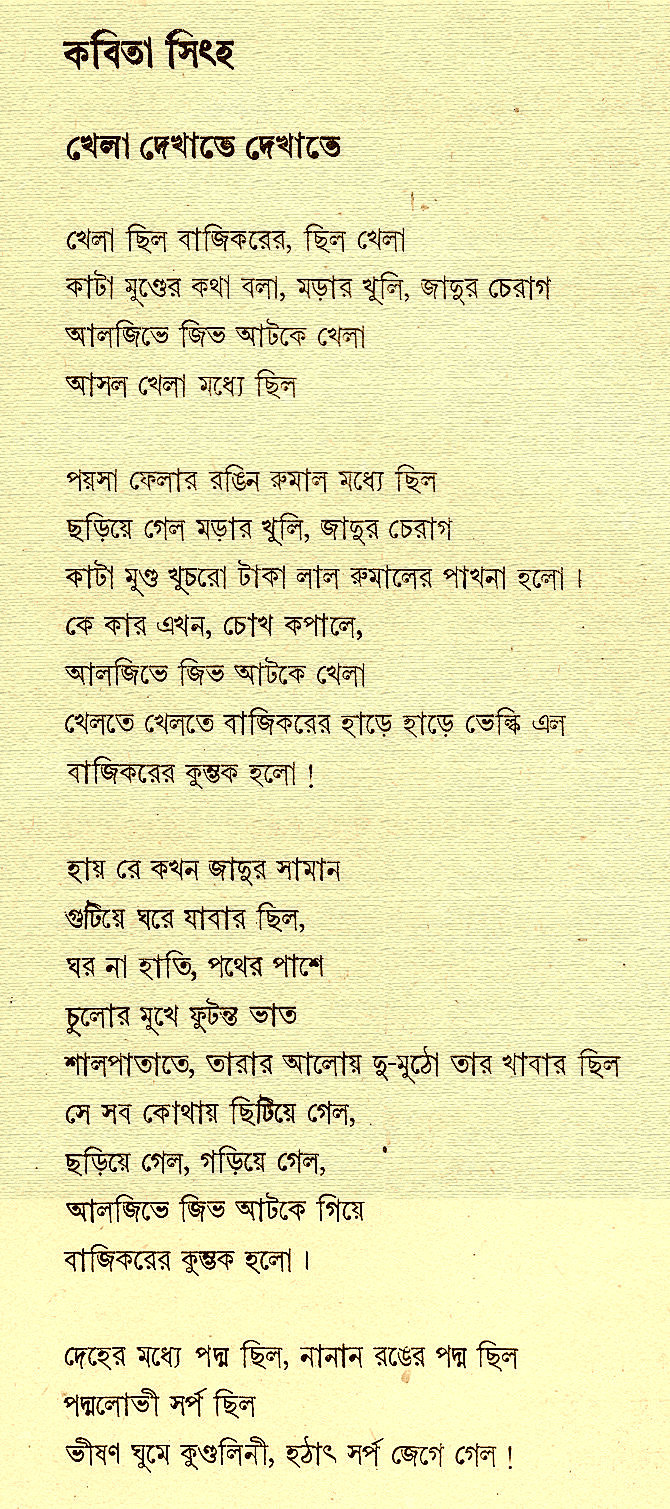 কবিতা সিংহ
খেলা দেখাতে দেখাতে
খেলা ছিল বাজিকরের, ছিল খেলা
কাটা মুণ্ডের কথা বলা, মড়ার খুলি, জাদুর চেরাগ
আলজিভে জিভ আটকে খেলা
আসল খেলা মধ্যে ছিল
পয়সা ফেলার রঙিন রুমাল মধ্যে ছিল
ছড়িয়ে গেল মড়ার খুলি, জাদুর চেরাগ
কাটা মুণ্ড খুচরো টাকা লাল রুমালের পাখনা হলো।
কে কার এখন, চোখ কপালে,
আলজিভে জিভ আটকে খেলা
খেলতে খেলতে বাজিকরের হাড়ে হাড়ে ভেল্কি এল
বাজিকরের কুম্ভক হলো!
হায় রে কখন জাদুর সামান
গুটিয়ে ঘরে যাবার ছিল,
ঘর না হাতি, পথের পাশে
চুলোর মুখে ফুটন্ত ভাত
শালপাতাতে, তারার আলোয় দু-মুঠো তার খাবার ছিল
সে সব কোথায় ছিটিয়ে গেল,
ছড়িয়ে গেল, গড়িয়ে গেল,
আলজিভে জিভ আটকে গিয়ে
বাজিকরের কুম্ভক হলো।
দেহের মধ্যে পদ্ম ছিল, নানান রঙের পদ্ম ছিল
পদ্মলোভী সর্প ছিল
ভীষণ ঘুমে কুণ্ডলিনী, হঠাৎ সর্প জেগে গেল!